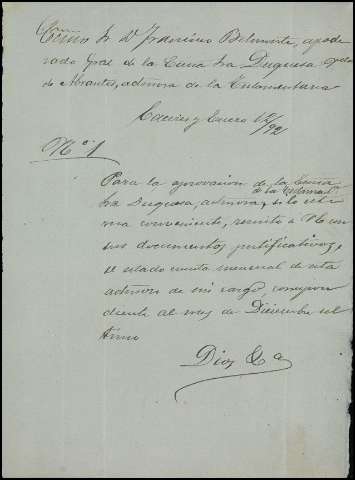 Excmo Sr Dn Francisco Belmonte, apode
rado gral de la Excma Sra Duquesa Vda
de Abrantes, admora de la Testamentaria
Caceres y Enero 12/92
No 1
Para la aprovacion de la Excma
Sra Duquesa, admora, de la Testamtª si lo esti
ma conveniente, remito á V. con
sus documentos justificativos,
el estado cuenta mensual de esta
admon de mi cargo, correspon
diente al mes de Diciembre del
Dios &a